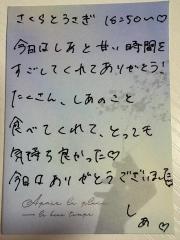 さくらとうさぎ 18:50〜♡
今日はしあと甘い時間を
すごしてくれてありがとう!
たくさん、しあのこと
食べてくれて、とっても
気持ち良かった♡
今日はありがとうございました
Après la pluie
le beau temps
しあ♡